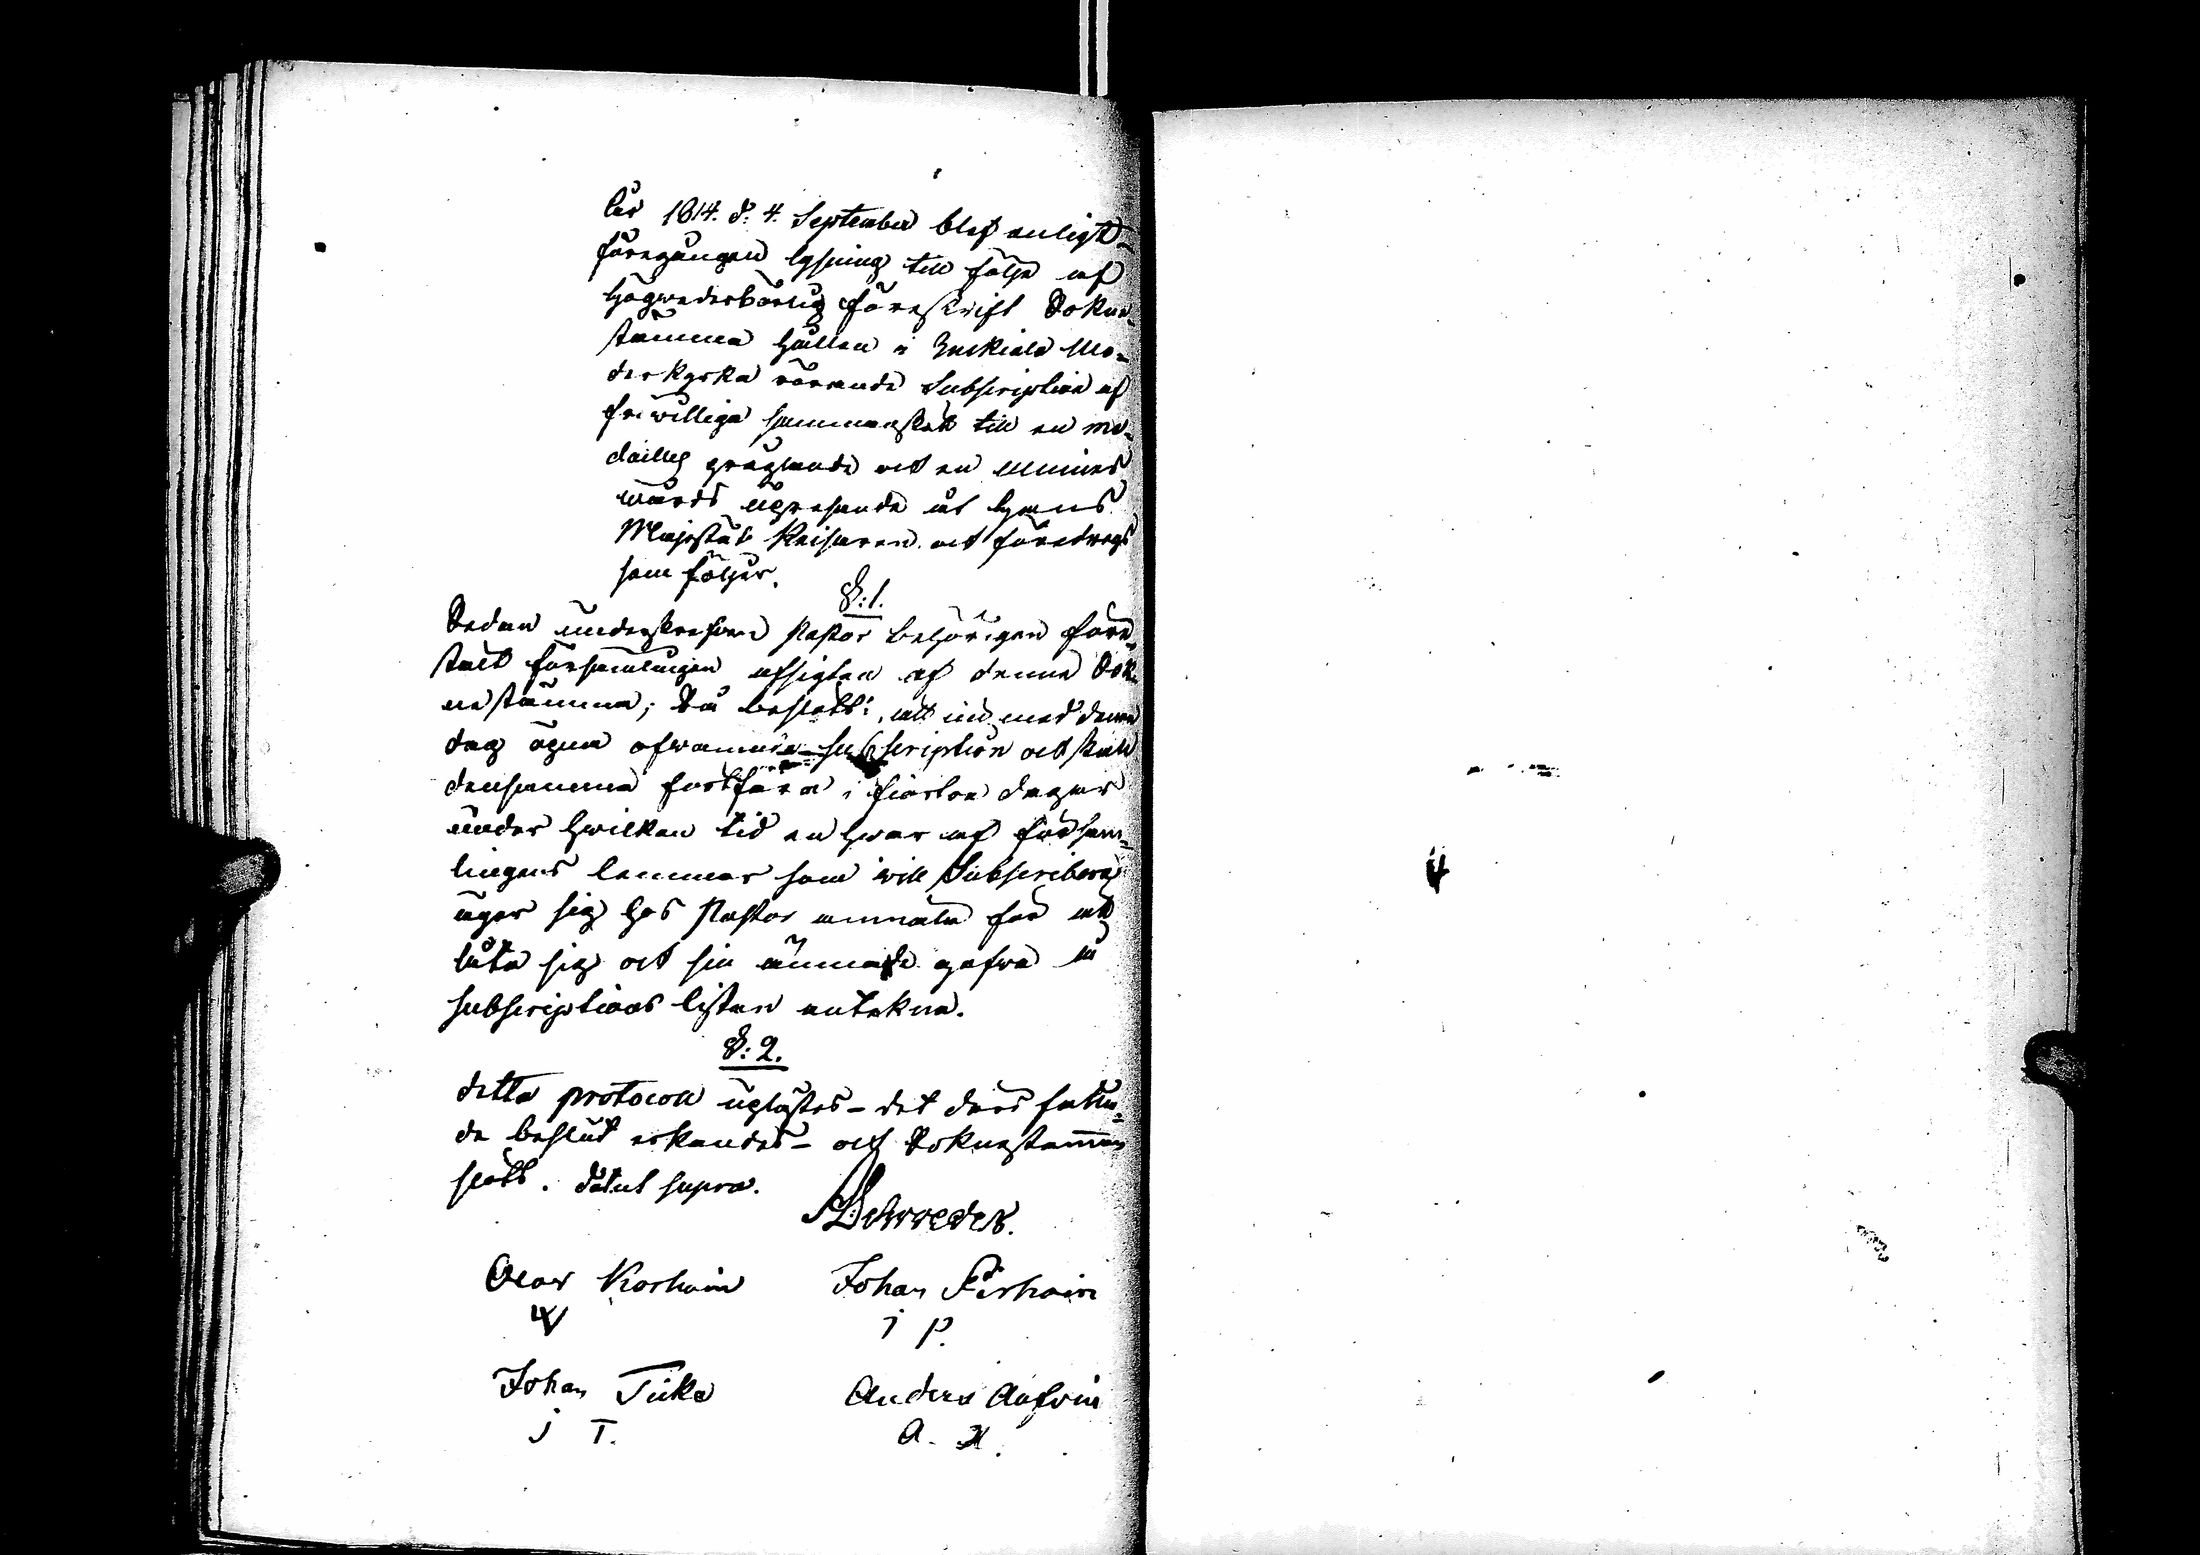 År 1814. d: 4. September blef enligt
föregången lysning till följe af
högwederbörlig föreskrift Sokne-
stämma hållen i Mo-
derkyrka rörande Subscription af
friwilliga sammanskott till en me-
daille präglande och en Minnes
wårds upresande åt Hans
Majestät Keisaren och företrogs
som följer.
§: 1.
Sedan underskrefven Pastor behörigen före-
stält församlingen afsigten af denna Sok-
nestämma; Så beslöts: att med denna
dag öpna ofwannämde subscription och skall
densamma fortfara i fjorton dagar
under hwilken tid en hwar af försam-
lingens lemmar som will Subscribera
äger sig hos Pastor anmäla för att
låta sig och sin ämnade gåfwa i
subscriptions listan antekna.
§: 2.
detta protocoll uplästes - det deri fattu-
de beslut erkändes - och Soknestämman
slöts. Datut supra.
Schroeder.
Olof Korhoin Johan
J P.
Johan Tuke Anders
J T. A. H.